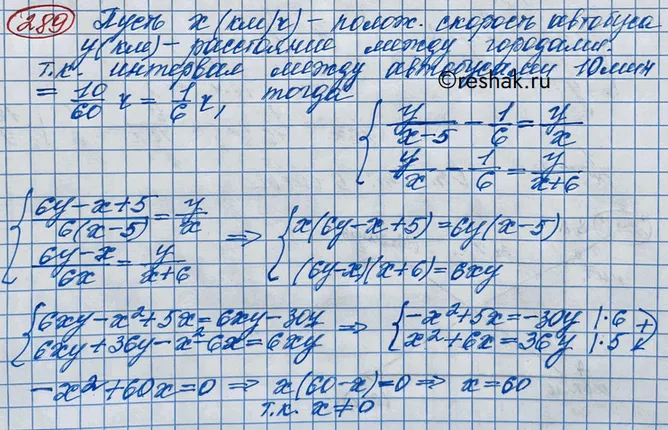 289 Пусть x (км/ч) – полож. скорость автобуса
y (км) – расстояние между городами.
т.к. интервал между автобусами 10 мин
= 10/60 ч = 1/6 ч, тогда
reshak.ru
{ y/(x-5) - 1/6 = y/x
y/x - 1/6 = y/(x+6)
{ (6y-x+5)/(6(x-5)) = y/x
(6y-x)/(6x) = y/(x+6)
=> { x(6y-x+5) = 6y(x-5)
(6y-x)(x+6) = 6xy
{ 6xy-x²+5x=6xy-30y
6xy+36y-x²-6x=6xy
=> { -x²+5x=-30y |·6
x²+6x=36y |·5 +
-x²+60x=0 => x(60-x)=0 => x=60
т.к. x≠0